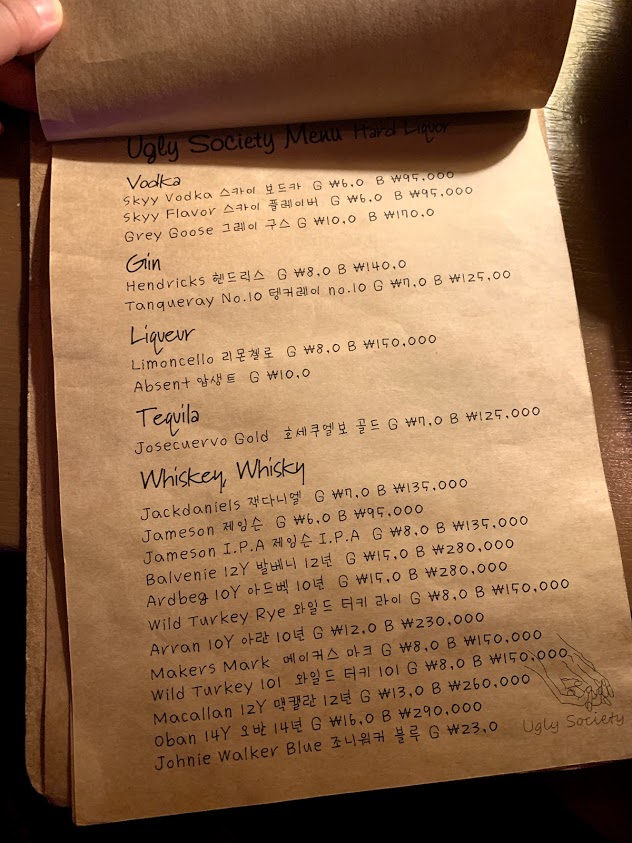 Ugly Society Menu Hard Liquor
Vodka
Skyy Vodka 스카이 보드카 G ₩6.0 B ₩95,000
Skyy Flavor 스카이 플레이버 G ₩6.0 B ₩95,000
Grey Goose 그레이 구스 G ₩10.0 B ₩170.0
Gin
Hendricks 헨드릭스 G ₩8.0 B ₩140.0
Tanqueray No.10 탱커레이 no.10 G ₩7.0 B ₩125.00
Liqueur
Limoncello 리몬첼로 G ₩8.0 B ₩150,000
Absent 압생트 G ₩10.0
Tequila
Josecuervo Gold 호세쿠엘보 골드 G ₩7.0 B ₩125,000
Whiskey, Whisky
Jackdaniels 잭다니엘 G ₩7.0 B ₩135,000
Jameson 제임슨 G ₩6.0 B ₩95,000
Jameson I.P.A 제임슨 I.P.A G ₩8.0 B ₩135,000
Balvenie 12Y 발베니 12년 G ₩15.0 B ₩280,000
Ardbeg 10Y 아드벡 10년 G ₩15.0 B ₩280,000
Wild Turkey Rye 와일드 터키 라이 G ₩8.0 B ₩150,000
Arran 10Y 아란 10년 G ₩12.0 B ₩230,000
Makers Mark 메이커스 마크 G ₩8.0 B ₩150,000
Wild Turkey 101 와일드 터키 101 G ₩8.0 B ₩150,000
Macallan 12Y 맥캘란 12년 G ₩13.0 B ₩260,000
Oban 14Y 오반 14년 G ₩16.0 B ₩290,000
Johnie Walker Blue 조니워커 블루 G ₩23.0
Ugly Society